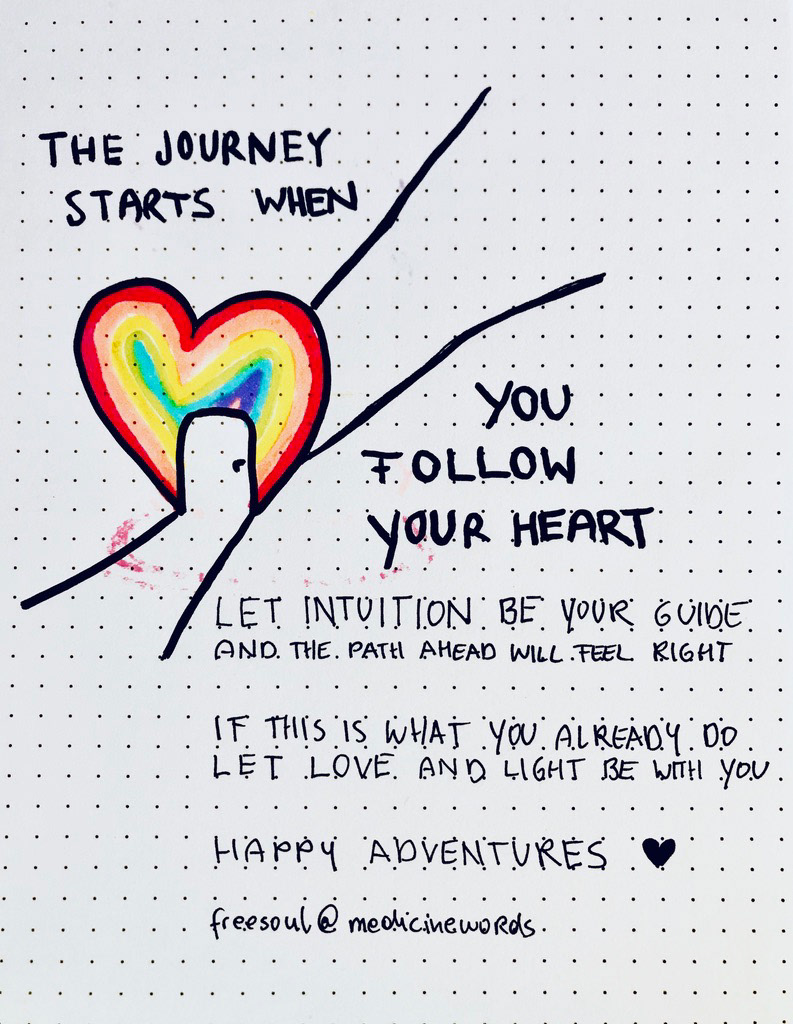 THE JOURNEY
STARTS WHEN
YOU
FOLLOW
YOUR HEART
LET INTUITION BE YOUR GUIDE
AND THE PATH AHEAD WILL FEEL RIGHT
IF THIS IS WHAT YOU ALREADY DO
LET LOVE AND LIGHT BE WITH YOU
HAPPY ADVENTURES ♥
freesoul@medicinewords